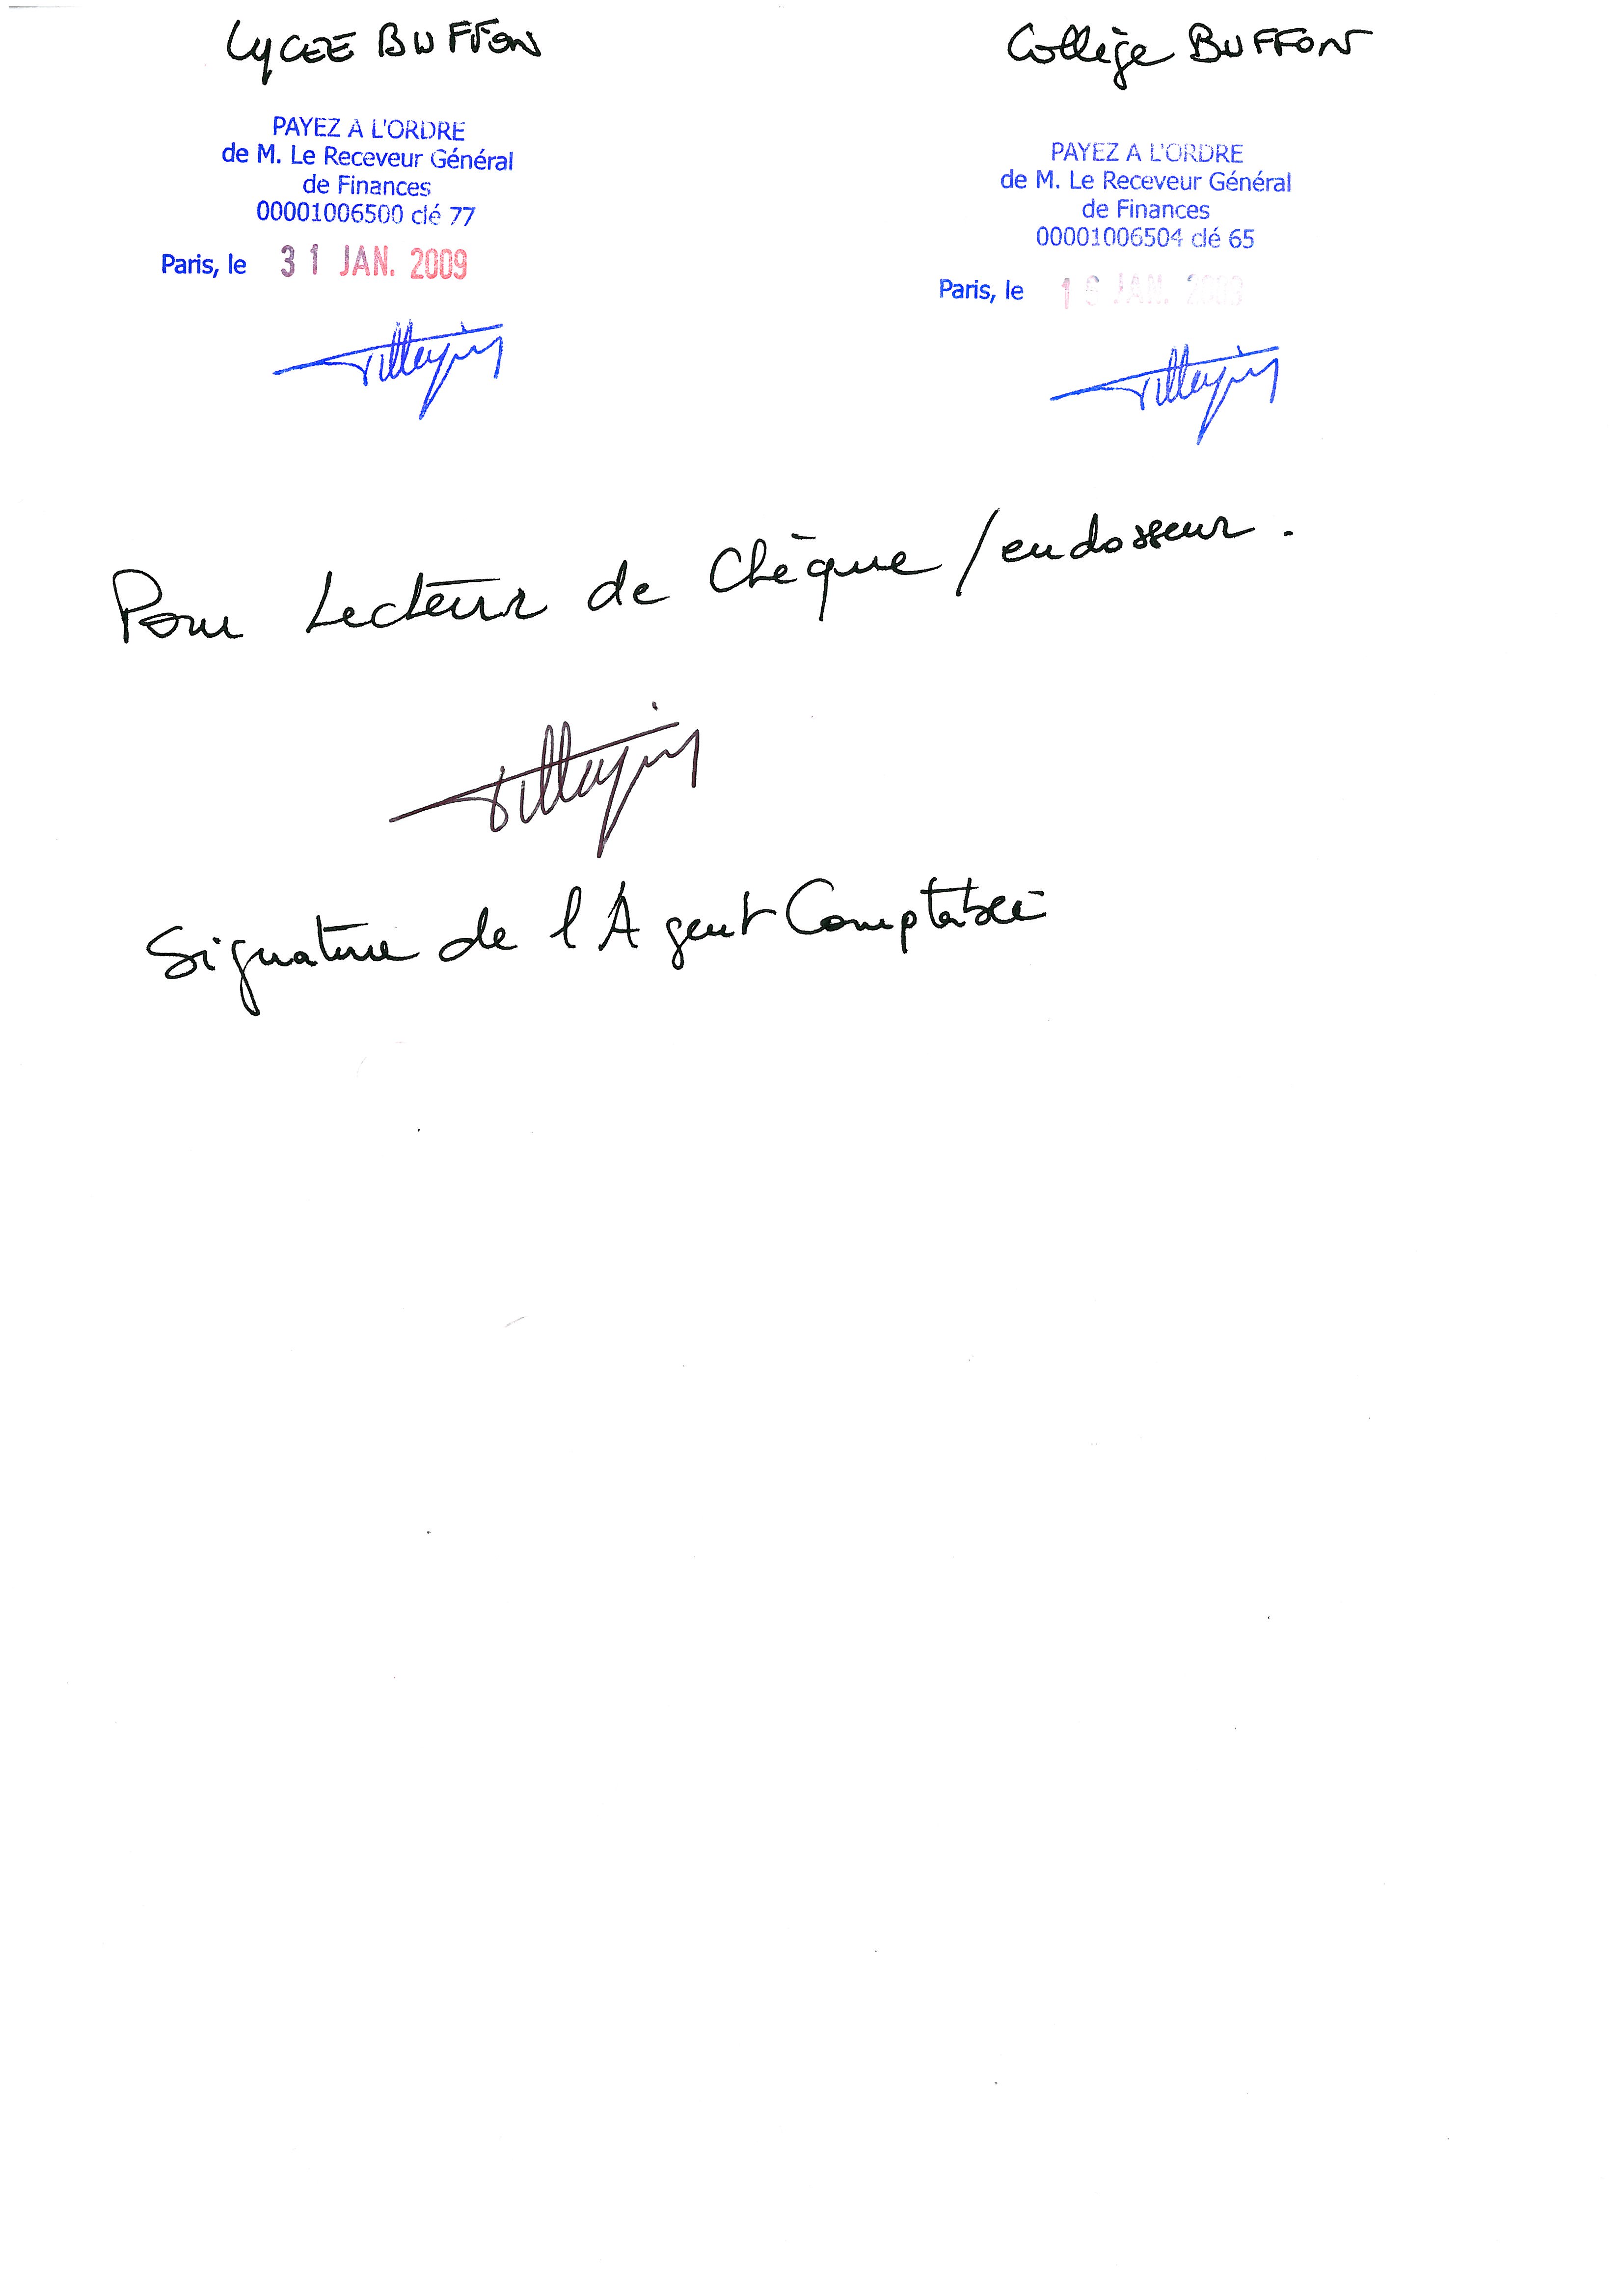 LYCEE BUFFON
PAYEZ A L'ORDRE
de M. Le Receveur Général
de Finances
00001006500 clé 77
Paris, le 31 JAN. 2009
Collège BUFFON
PAYEZ A L'ORDRE
de M. Le Receveur Général
de Finances
00001006504 clé 65
Paris, le JAN.
Pour Lecteur de Chèque / endosseur.
Signature de l'Agent Comptable